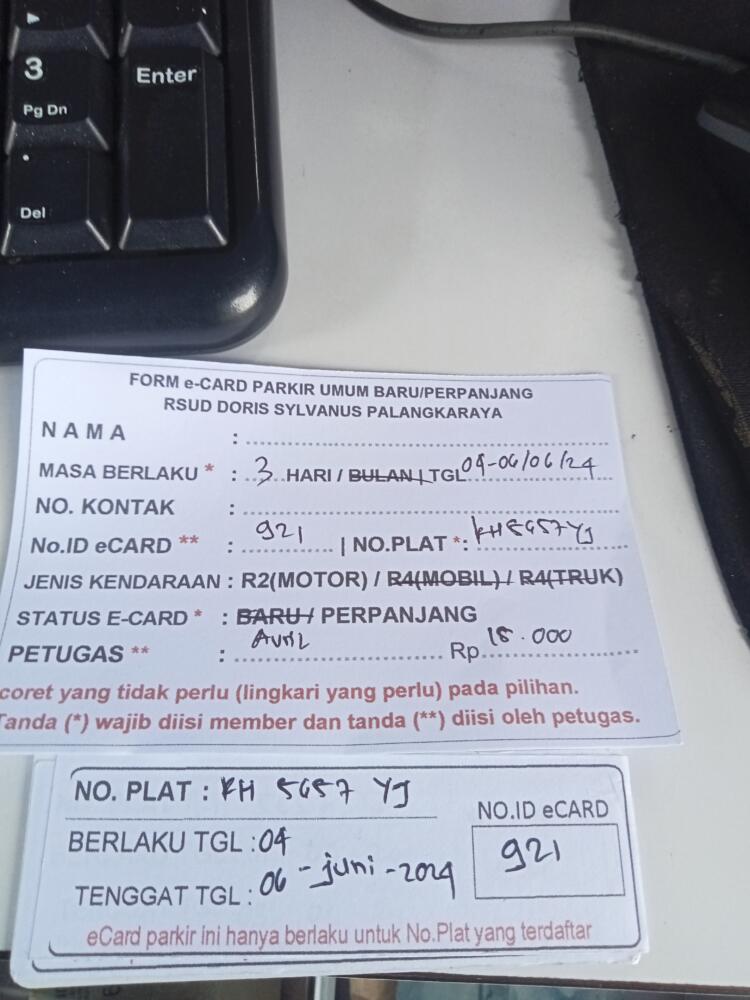 3
Pg Dn
Enter
.
Del
FORM e-CARD PARKIR UMUM BARU/PERPANJANG
RSUD DORIS SYLVANUS PALANGKARAYA
NAMA :
MASA BERLAKU * : 3 HARI / BULAN | TGL 04-06/06/24
NO. KONTAK :
No.ID eCARD ** : 921 | NO.PLAT *: KH 5657 YJ
JENIS KENDARAAN : R2(MOTOR) / R4(MOBIL) / R4(TRUK)
STATUS E-CARD * : BARU / PERPANJANG
PETUGAS ** : Avril Rp 15.000
coret yang tidak perlu (lingkari yang perlu) pada pilihan.
Tanda (*) wajib diisi member dan tanda (**) diisi oleh petugas.
NO. PLAT : KH 5657 YJ
NO.ID eCARD
921
BERLAKU TGL : 04
TENGGAT TGL : 06 - juni - 2024
eCard parkir ini hanya berlaku untuk No.Plat yang terdaftar